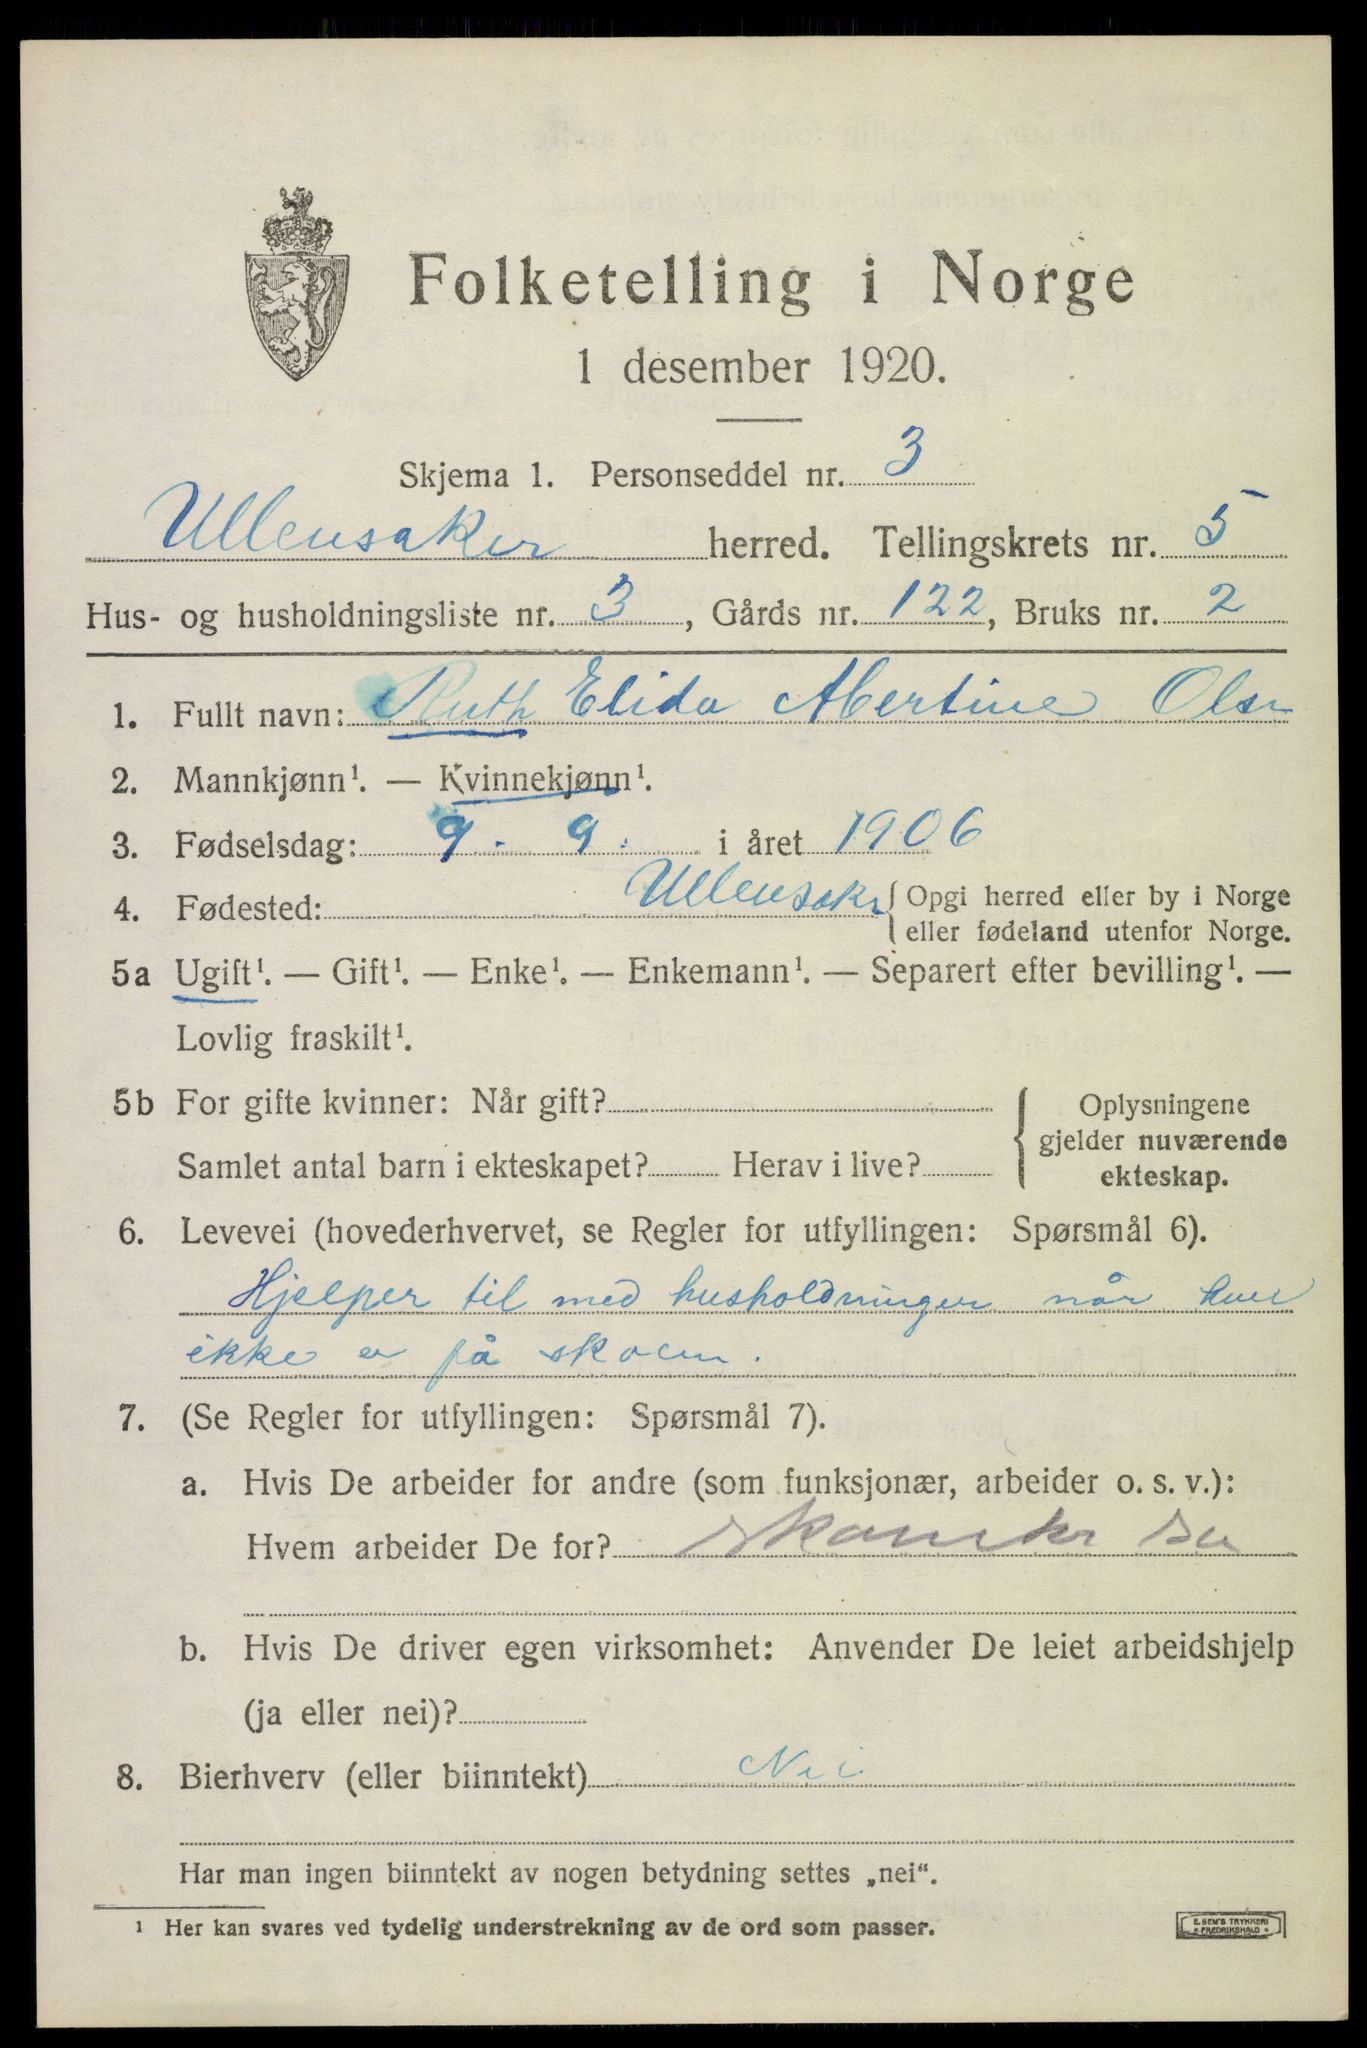 Folketelling i Norge
1 desember 1920.
Skjema 1. Personseddel nr. 3
Ullensaker herred. Tellingskrets nr. 5
Hus- og husholdningsliste nr. 3, Gårds nr. 122, Bruks nr. 2
1. Fullt navn: Ruth Elida Albertine Olsn
2. Mannkjønn¹. — Kvinnekjønn¹.
3. Fødselsdag: 9. 9. i året 1906
4. Fødested: Ullensakr { Opgi herred eller by i Norge
eller fødeland utenfor Norge.
5a Ugift¹. — Gift¹. — Enke¹. — Enkemann¹. — Separert efter bevilling¹. —
Lovlig fraskilt¹.
5b For gifte kvinner: Når gift? { Oplysningene
gjelder nuværende
Samlet antal barn i ekteskapet? Herav i live?
ekteskap.
6. Levevei (hovederhvervet, se Regler for utfyllingen: Spørsmål 6).
Hjelper til med husholdningen når hun
ikke er på skoen.
7. (Se Regler for utfyllingen: Spørsmål 7).
a. Hvis De arbeider for andre (som funksjonær, arbeider o. s. v.):
Hvem arbeider De for?
b. Hvis De driver egen virksomhet: Anvender De leiet arbeidshjelp
(ja eller nei)?
8. Bierhverv (eller biinntekt) Nei
Har man ingen biinntekt av nogen betydning settes „nei“.
¹ Her kan svares ved tydelig understrekning av de ord som passer.
E. SEM'S TRYKKERI
FREDRIKSHALD